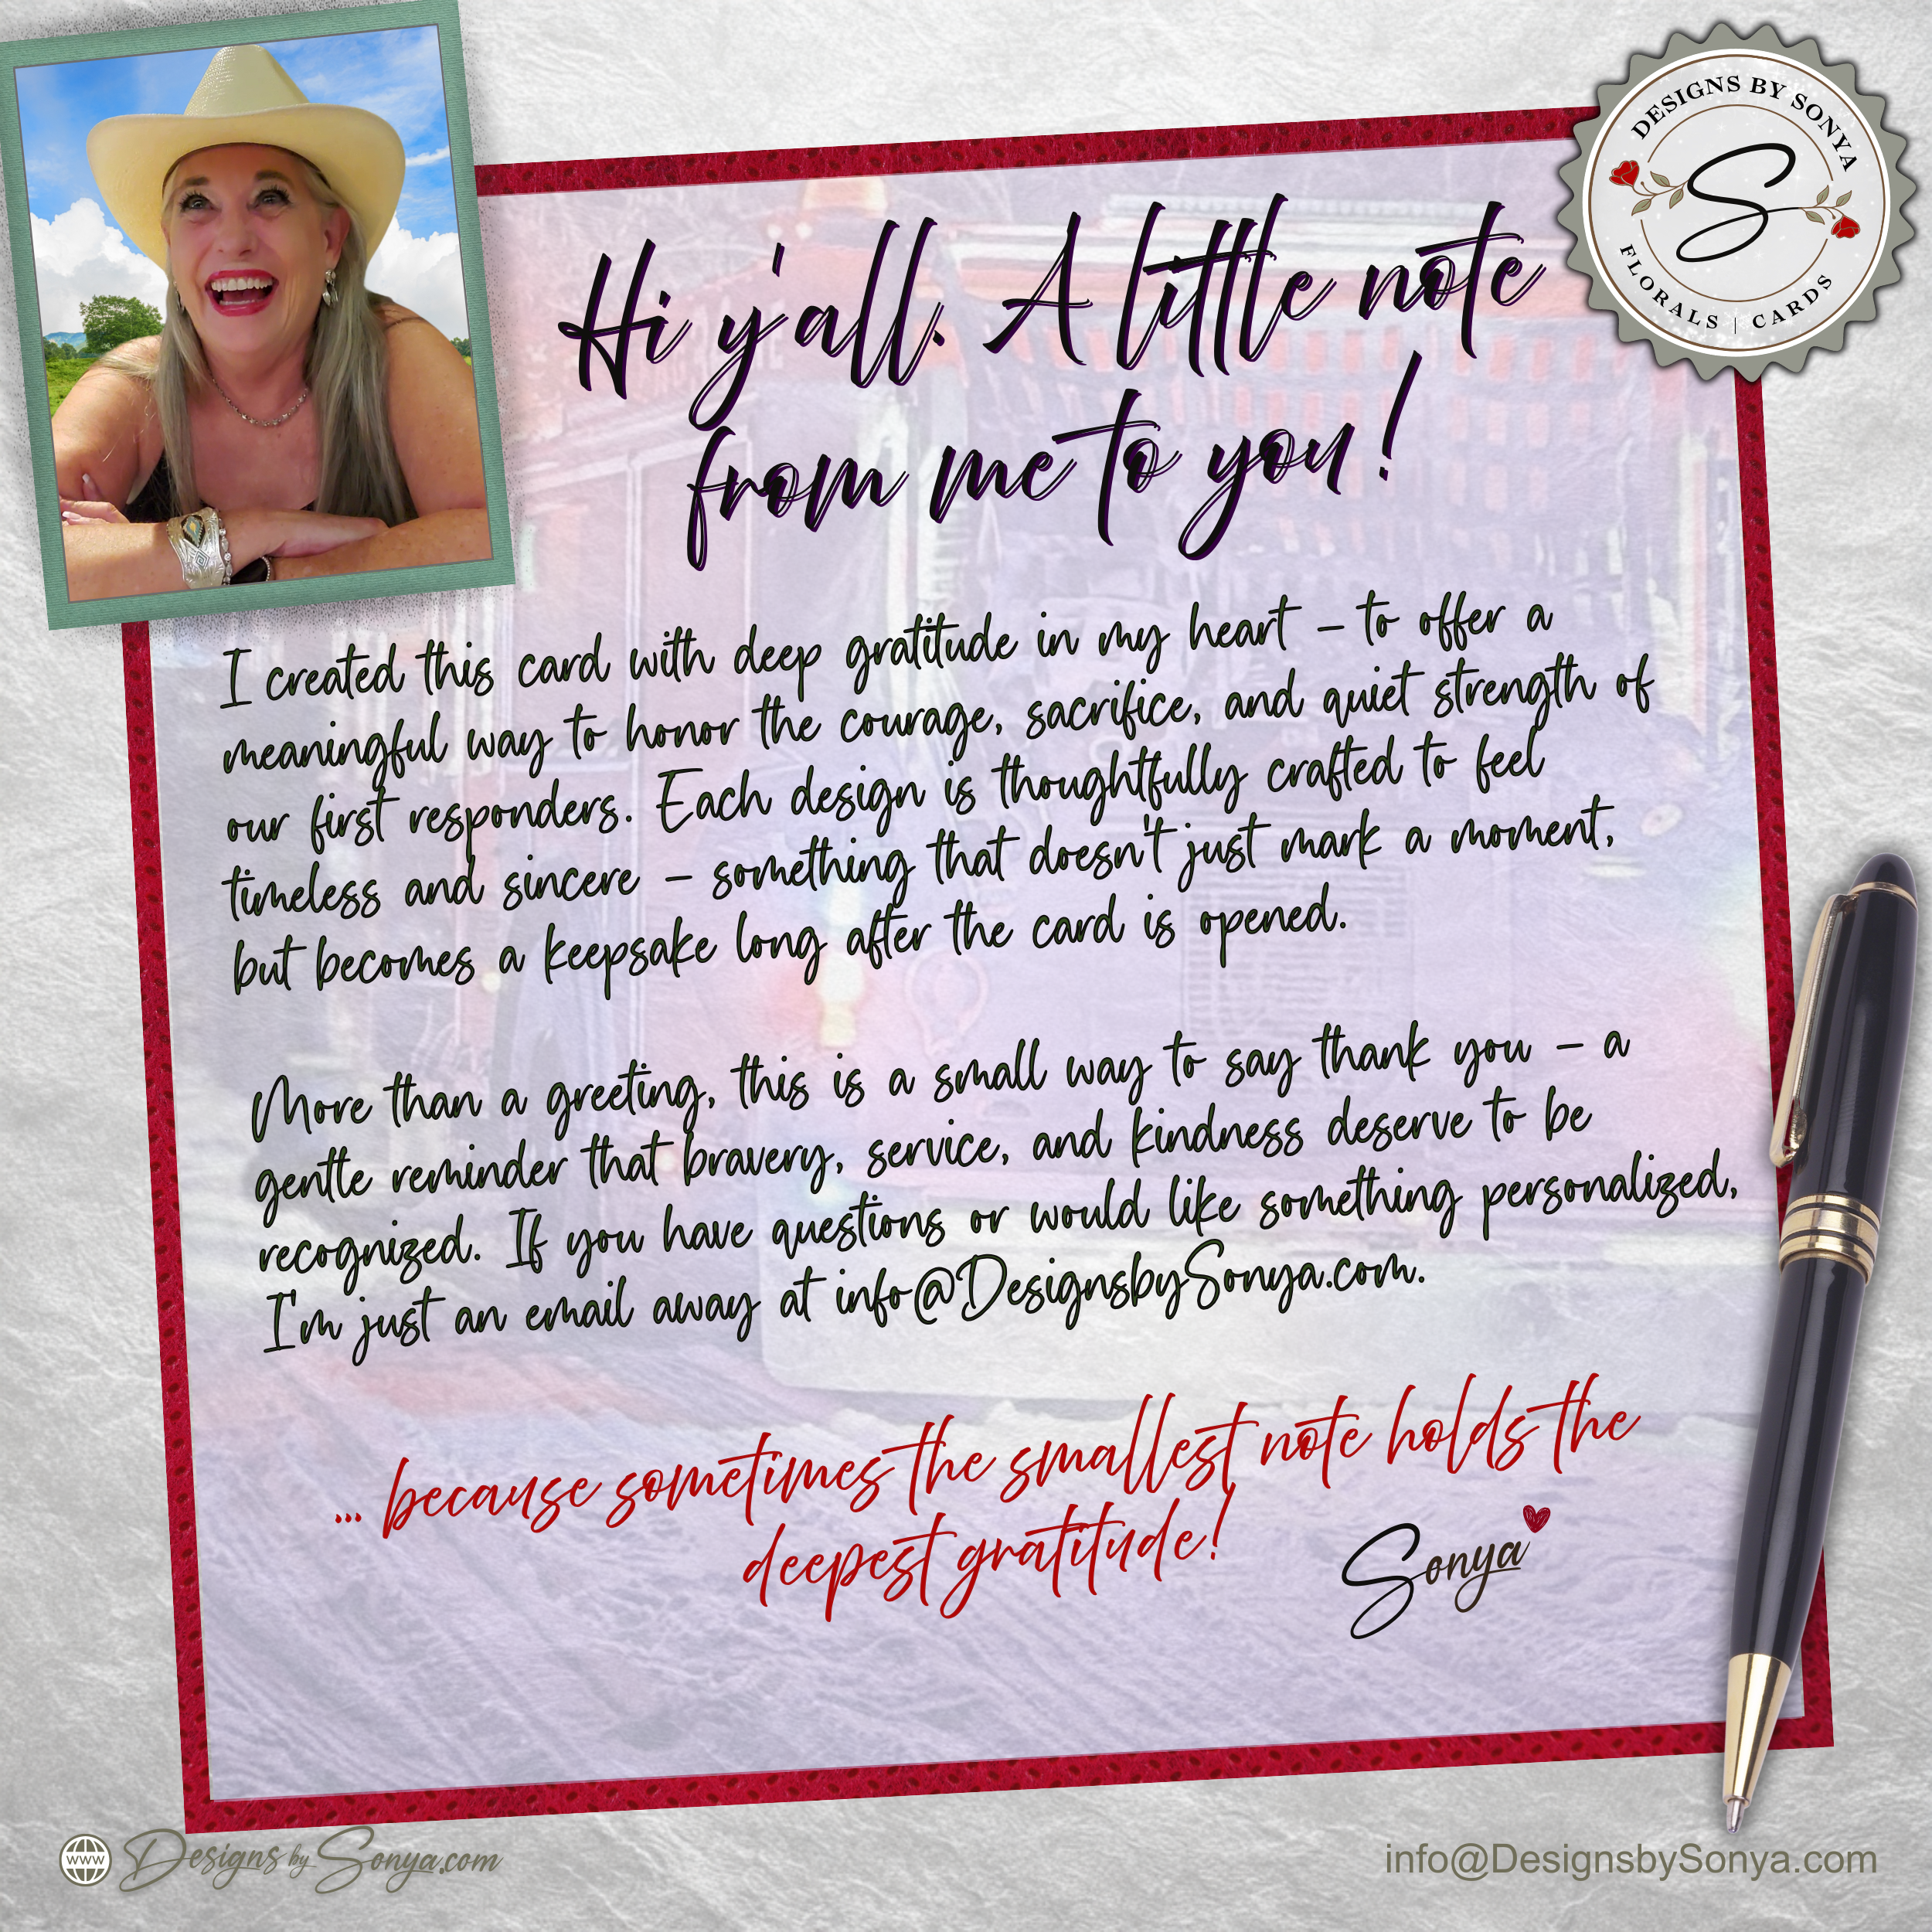 DESIGNS BY SONYA
S
FLORALS | CARDS
Hi y'all. A little note
from me to you!
I created this card with deep gratitude in my heart – to offer a
meaningful way to honor the courage, sacrifice, and quiet strength of
our first responders. Each design is thoughtfully crafted to feel
timeless and sincere – something that doesn't just mark a moment,
but becomes a keepsake long after the card is opened.
More than a greeting, this is a small way to say thank you – a
gentle reminder that bravery, service, and kindness deserve to be
recognized. If you have questions or would like something personalized,
I'm just an email away at info@DesignsbySonya.com.
... because sometimes the smallest note holds the
deepest gratitude!
Sonya
www DesignsbySonya.com
info@DesignsbySonya.com